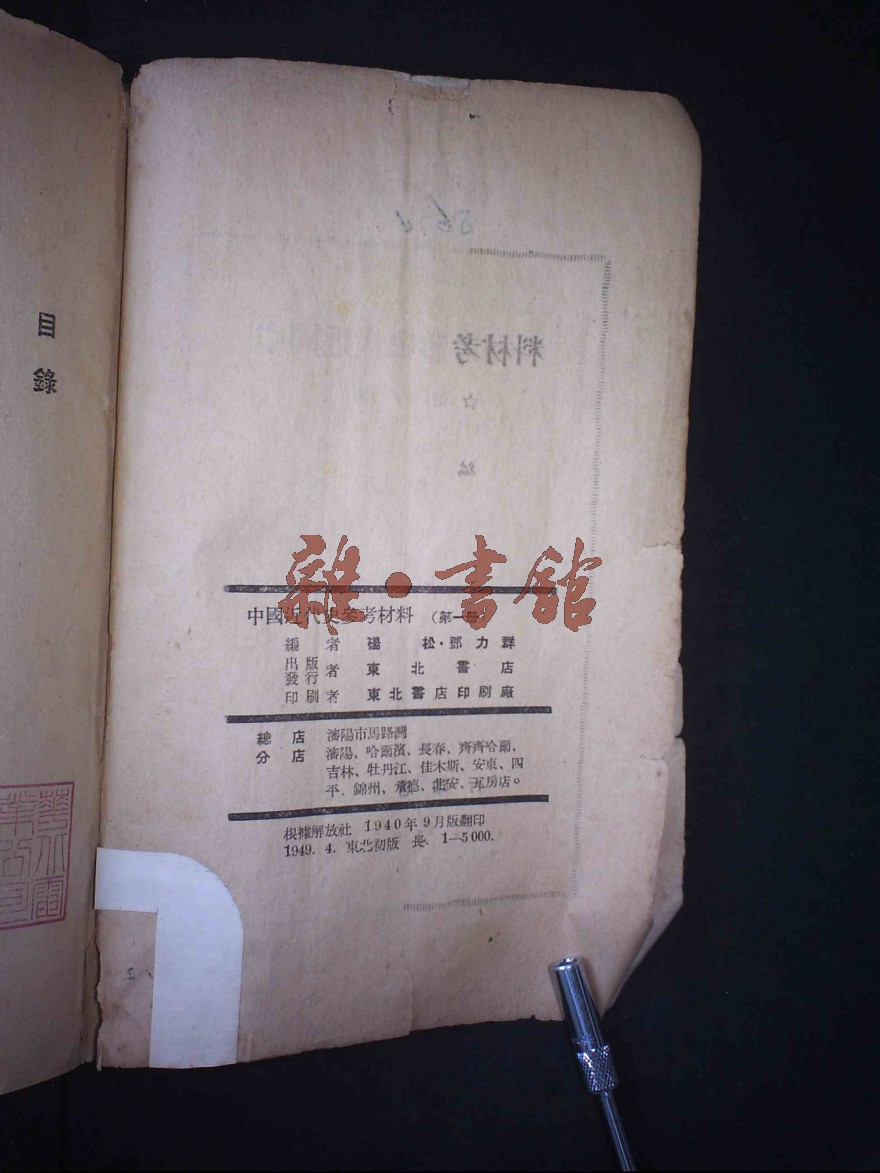 目錄
雜·書館
中國近代史參考材料 (第一冊)
編者 楊松·鄧力群
出版
發行者 東北書店
印刷者 東北書店印刷廠
總店 瀋陽市馬路灣
分店 瀋陽、哈爾濱、長春、齊齊哈爾、
吉林、牡丹江、佳木斯、安東、四
平、錦州、承德、北安、瓦房店。
根據解放社 1940年9月版翻印
1949. 4. 東北初版 長. 1—5000.